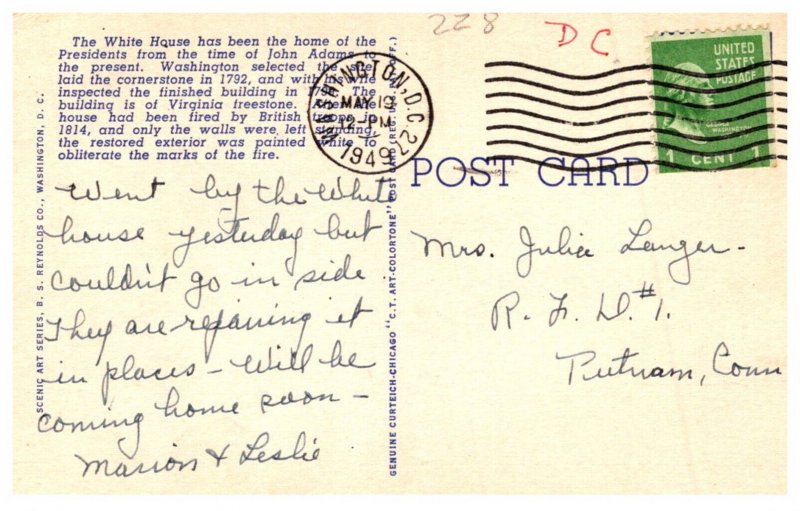 228
D C
The White House has been the home of the
Presidents from the time of John Adams to
the present. Washington selected the site,
laid the cornerstone in 1792, and with his wife
inspected the finished building in 1799. The
building is of Virginia freestone. After the
house had been fired by British troops in
1814, and only the walls were left standing,
the restored exterior was painted white to
obliterate the marks of the fire.
WASHINGTON, D.C. 27
MAY 19
12-PM
1949
UNITED
STATES
POSTAGE
GEORGE
WASHINGTON
1 CENT 1
POST CARD
Went by the White
house yesterday but
couldn't go in side
They are repairing it
in places - Will be
coming home soon -
Marion & Leslie
Mrs. Julia Langer -
R. F. D. #1.
Putnam, Conn
SCENIC ART SERIES, B. S. REYNOLDS CO., WASHINGTON, D. C.
GENUINE CURTEICH-CHICAGO "C.T. ART-COLORTONE" POST CARD (REG. U.S. PAT. OFF.)